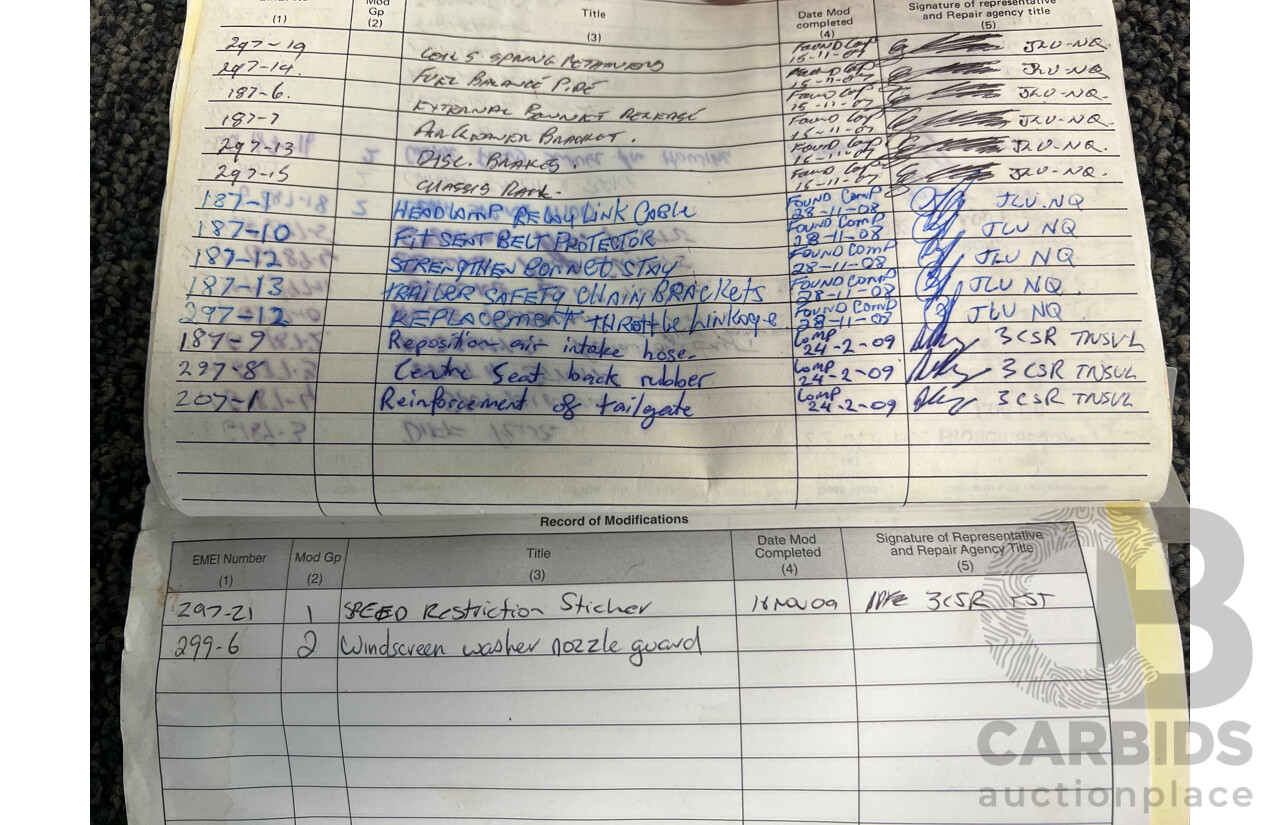 Mod
Gp
(1) (2) Title (3) Date Mod completed (4) Signature of representative and Repair agency title (5)
297-19 COIL SPRING RETAINERS FOUND Comp 15-11-07 JLU-NQ
297-14. FUEL BALANCE PIPE Found Comp 15-11-07 JLU-NQ
187-6. EXTERNAL BONNET RELEASE Found Comp 15-11-07 JLU-NQ.
187-7 BRACKET. Found Comp 15-11-07 JLU-NQ.
297-13 DISC. BRAKES. Found Comp 15-11-07 JLU-NQ.
297-15 CHASSIS Found Comp 15-11-07 JLU-NQ.
187-1 HEADLAMP RELAY LINK CABLE FOUND COMP 28-11-08 JLU.NQ
187-10 FIT SEAT BELT PROTECTOR FOUND COMP 28-11-08 JLU NQ
187-12 STRENGTHEN BONNET STAY FOUND COMP 28-11-08 JLU NQ
187-13 TRAILER SAFETY CHAIN BRACKETS FOUND COMP 28-11-08 JLU NQ.
297-12 REPLACEMENT THROTTLE Linkage. FOUND COMP 28-11-08 JLU NQ
187-9 Reposition air intake hose. COMP 24-2-09 3 CSR TNSVL
297-8 Centre Seat back rubber COMP 24-2-09 3 CSR TNSVL
207-1 Reinforcement of tailgate COMP 24-2-09 3 CSR TNSVL
Record of Modifications
EMEI Number (1) Mod Gp (2) Title (3) Date Mod Completed (4) Signature of Representative and Repair Agency Title (5)
297-21 1 SPEED Restriction Sticker 18 NOV 09 3CSR TST
299-6 2 Windscreen washer nozzle guard
CARBIDS
auctionplace